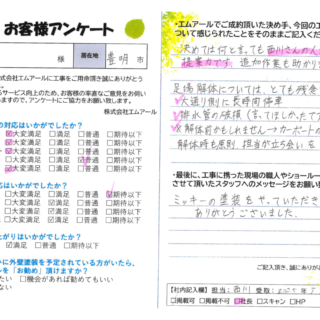 お客様アンケート
様 居住地 豊明 市
株式会社エムアールに工事をご用命頂き誠にありがとう
るサービス向上のため、お客様の率直なご意見をお伺い
ますので、アンケートにご協力をお願い致します。
株式会社エムアール
の対応はいかがでしたか？
大変満足 □満足 □普通 □期待以下
大変満足 □満足 □普通 □期待以下
大変満足 □満足 □普通 □期待以下
大変満足 □満足 □普通 □期待以下
大変満足 □満足 □普通 □期待以下
応はいかがでしたか？
大変満足 □満足 □普通 □期待以下
□大変満足 □満足 □普通 期待以下
上がりはいかがでしたか？
大変満足 □満足 □普通 □期待以下
かに外壁塗装を予定されている方がいたら、
ルを「お勧め」頂けますか？
たい □機会があれば勧めてもいい
ない
・エムアールでご成約頂いた決め手、今回の工
ついて感じられたことをそのままご記入くださ
決めては何と言っても西川さんの人
提案力です。追加作業も助かり
足場解体については、とても残念
大通り側に長時間停車
排水管の破損（言ってほしかったで
解体前かもしれません→カーポートの
解体時も原則 担当が立ち会いを
・最後に、工事に携った現場の職人やショールー
させて頂いたスタッフへのメッセージをお願い致
ミッキーの塗装をやっていただき
ありがとうございました。
ご記入頂き、誠にありがと
【社内記入欄】担当：西川 受取：
□掲載可 □掲載不可 社長 □スキャン □HP